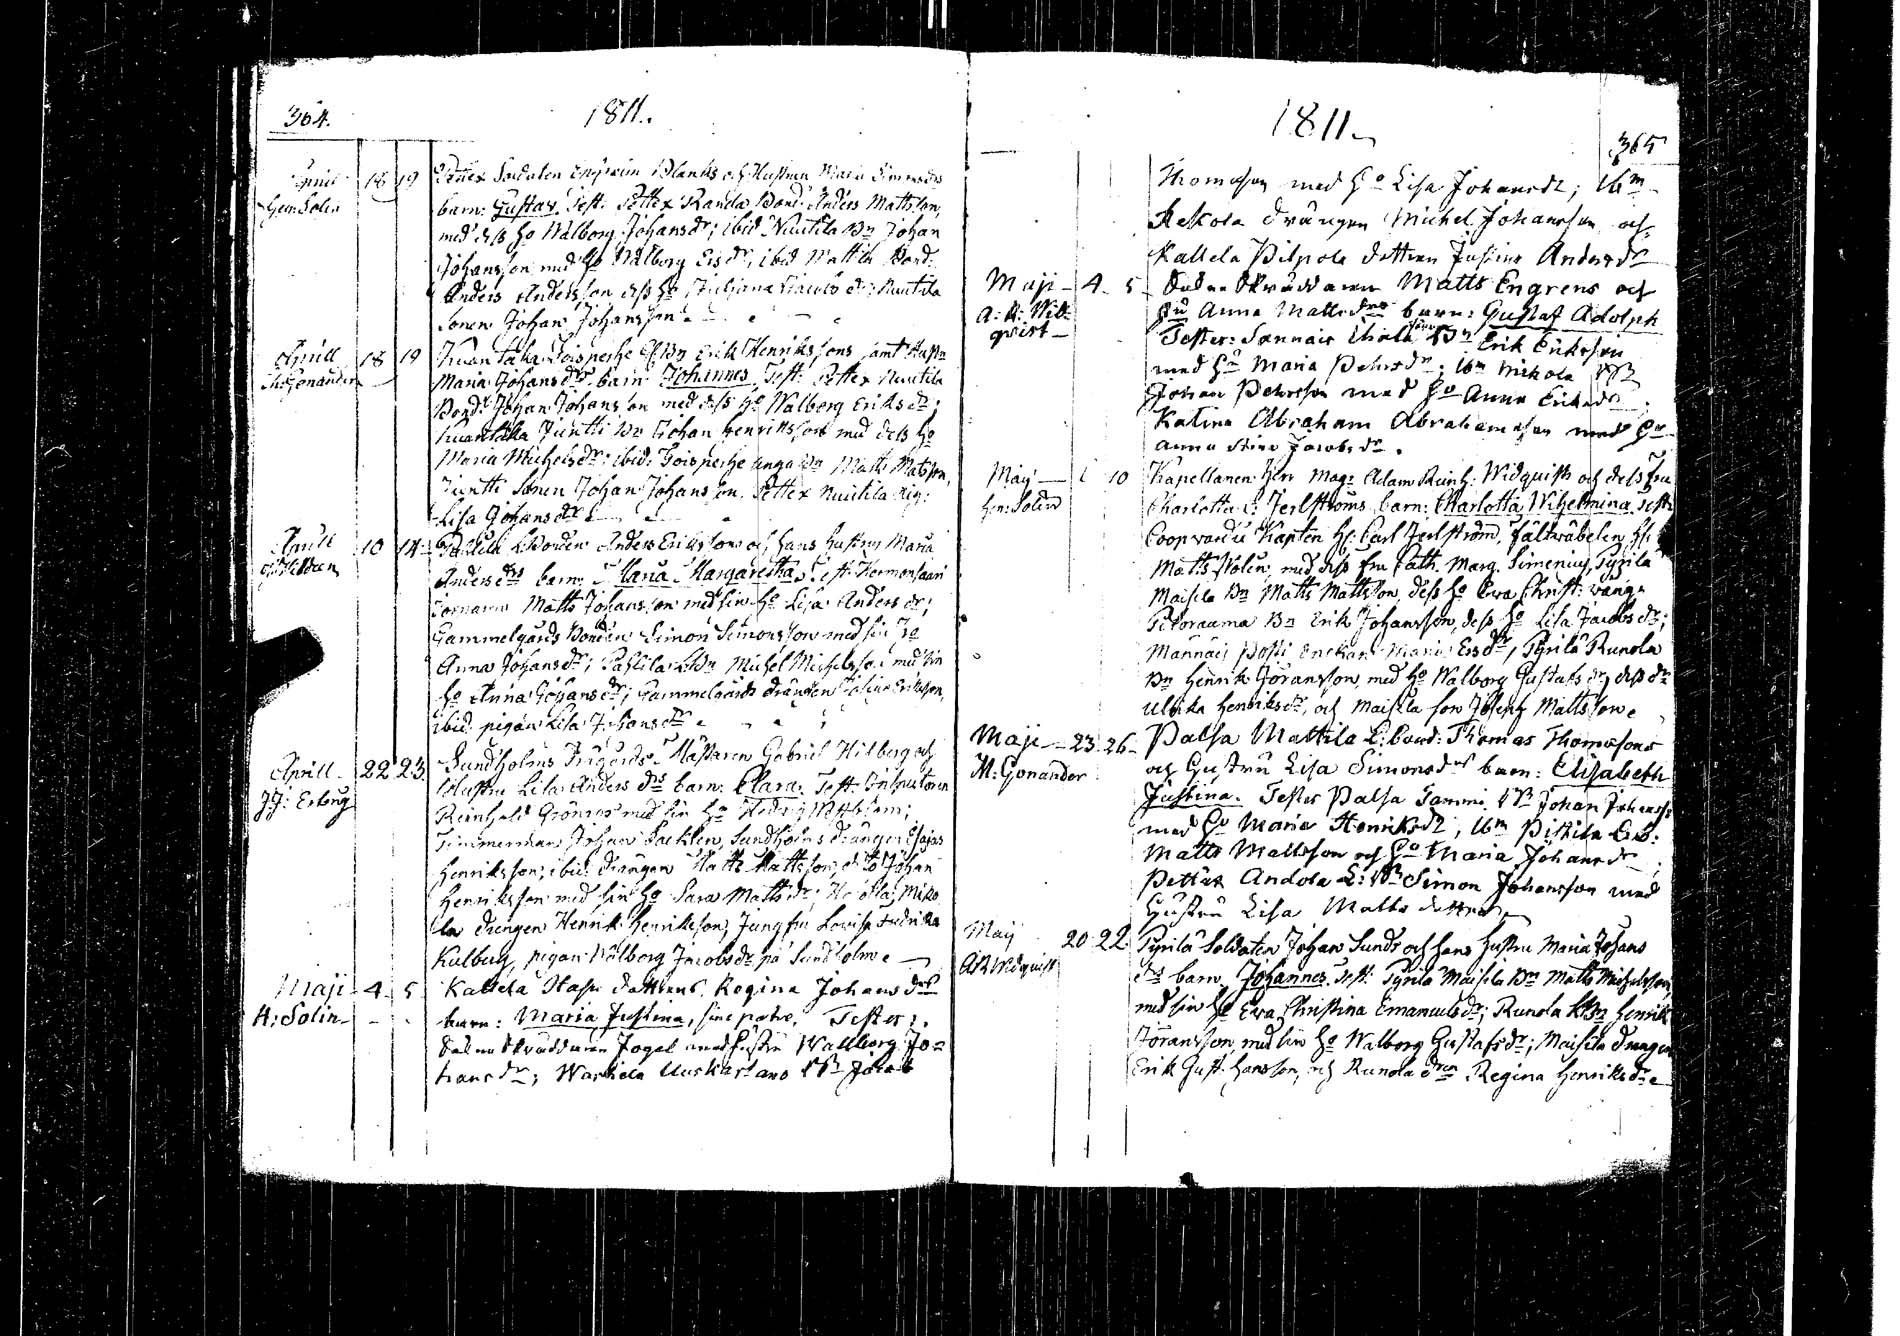 364.
1811.
April 18 19 Soldaten Ephraim Blanks och Hustrun Maria Simonsdrs
Hen: Solin barn: Gustav. Test: Pettex Randa Bond. Anders Mattsson,
med dess Ho Walborg Johansdr; ibid Nuutila Bn Johan
Johansson med Ho Walborg Ersdr, ibid Mattila Bond.
Anders Andersson dess Ho Juliana Jacobs dr; Nuutila
Sonen Johan Johansson
Aprill 18 19 Erik Henrikssons samt Hustr
Gonander Maria Johansdrs barn: Johannes, Test: Pettex Nuutila
Bond. Johan Johansson med dess Ho Walborg Eriksdr;
Juntti Bn Johan Henriksson med dess Ho
Maria Michelsdr; ibid: unga Bn Matts Matsson,
Juntti Sonen Johan Johansson. Pettex Nuutila Pig:
Lisa Johansdr
Aprill 10 14 Pahlila Bonden Anders Erikssons och hans hustrus Maria
Andersdrs barn: Maria Margaretha, Test: Hermonsaari
Matts Johansson med sin Ho Lisa Andersdr;
Gammelgårds Bonden Simon Simonsson med sin Ho
Anna Johansdr; Pahlila Bn Michel Michelsson med sin
Ho Anna Johansdr; Gammelgårds drängen Eriksson,
ibid: pigan Lisa Johansdr
Aprill 22 23. Sundholms Trägårds Mästaren Gabriel Hilberg och
JJ: Erling Hustru Lisa Anders drs barn: Clara. Test: Inspectoren
Reinhold Grönros med sin Ho
Timmerman Johan Sacklen, Sundholms drängen Esajas
Henriksson; ibid: drängen Matts Mattsson, dito Johan
Henriksson med sin Ho Sara Matts dr; Miko
la drengen Henrik Henriksson, Jungfru Lovisa Fredrika
Kulberg, pigan Wålborg Jacobsdr på Sundholm
Maji 4 5 Kallela dottrens Regina Johansdrs
H: Solin barn: Maria Justina, sine patre. Testes:
Skräddaren Fogel med hustru Wallborg Jo=
hansdr; Warhela Uuskartano Bn Jacob
1811
365
Thomasson med Ho Lisa Johansdr; ibm
Rekola drängen Michel Johansson och
Kallela Pilpola dottren Justina Andersdr
Maji 4 5 Skräddaren Matts Engrens och
A: R: Wid= Hu Anna Mattsdrs barn: Gustaf Adolph
qvist Testes: Sannais Bn Erik Eriksson
med Ho Maria Pehrsdr; ibm Mickola Bn
Johan Pehrsson med Ho Anna Eriksdr;
Katina Abraham Abrahamsson med Ho
Anna Stina Jacobsdr.
Maij 10 Kapellanen Herr Mag: Adam Reinh: Widquists och dess fru
Hen: Solin Charlotta C: Jerlströms barn: Charlotta Wilhelmina. Test:
Coopvardie Kapten Hr. Carl Jerlström, Fältwäbelen Hr
Matts Polin, med dess fru Cath. Marg. Simenius, Pyrilä
Maisila Bn Matts Mattsson, dess Ho Eva Christ:
Bn Erik Johansson, dess Ho Lisa Jacobs dr;
Männäis Posti Enckan Maria Ersdr, Pyrilä Runola
Bn Henrik Göransson, med Ho Walborg Gustafs dr, dess dr
Ulrika Henriksdr, och Maisila son Mattsson
Maji 23 26 Palsa Mattila L: bond: Thomas Thomassons
M: Gonander och Hustru Lisa Simonsdrs barn: Elisabeth
Justina. Testes Palsa Tammi Bn Johan Johansson
med Ho Maria Henriksdr, ibm Pihkila
Matts Mattsson och Ho Maria Johansdr
Pettäx Andola L: Bn Simon Johansson med
Hustru Lisa Matts dotter
Maij 20 22 Pyrilä Soldaten Johan Sunds och hans hustru Maria Johans
AR Widquist drs barn, Johannes. Test: Pyrilä Maisila Bn Matts Michelsson,
med sin Ho Eva Christina Emanuelsdr; Runola Bn Henrik
Göransson med sin Ho Walborg Gustafsdr; Maisila drengen
Erik Gust. Hansson, och Runola dren Regina Henriksdr